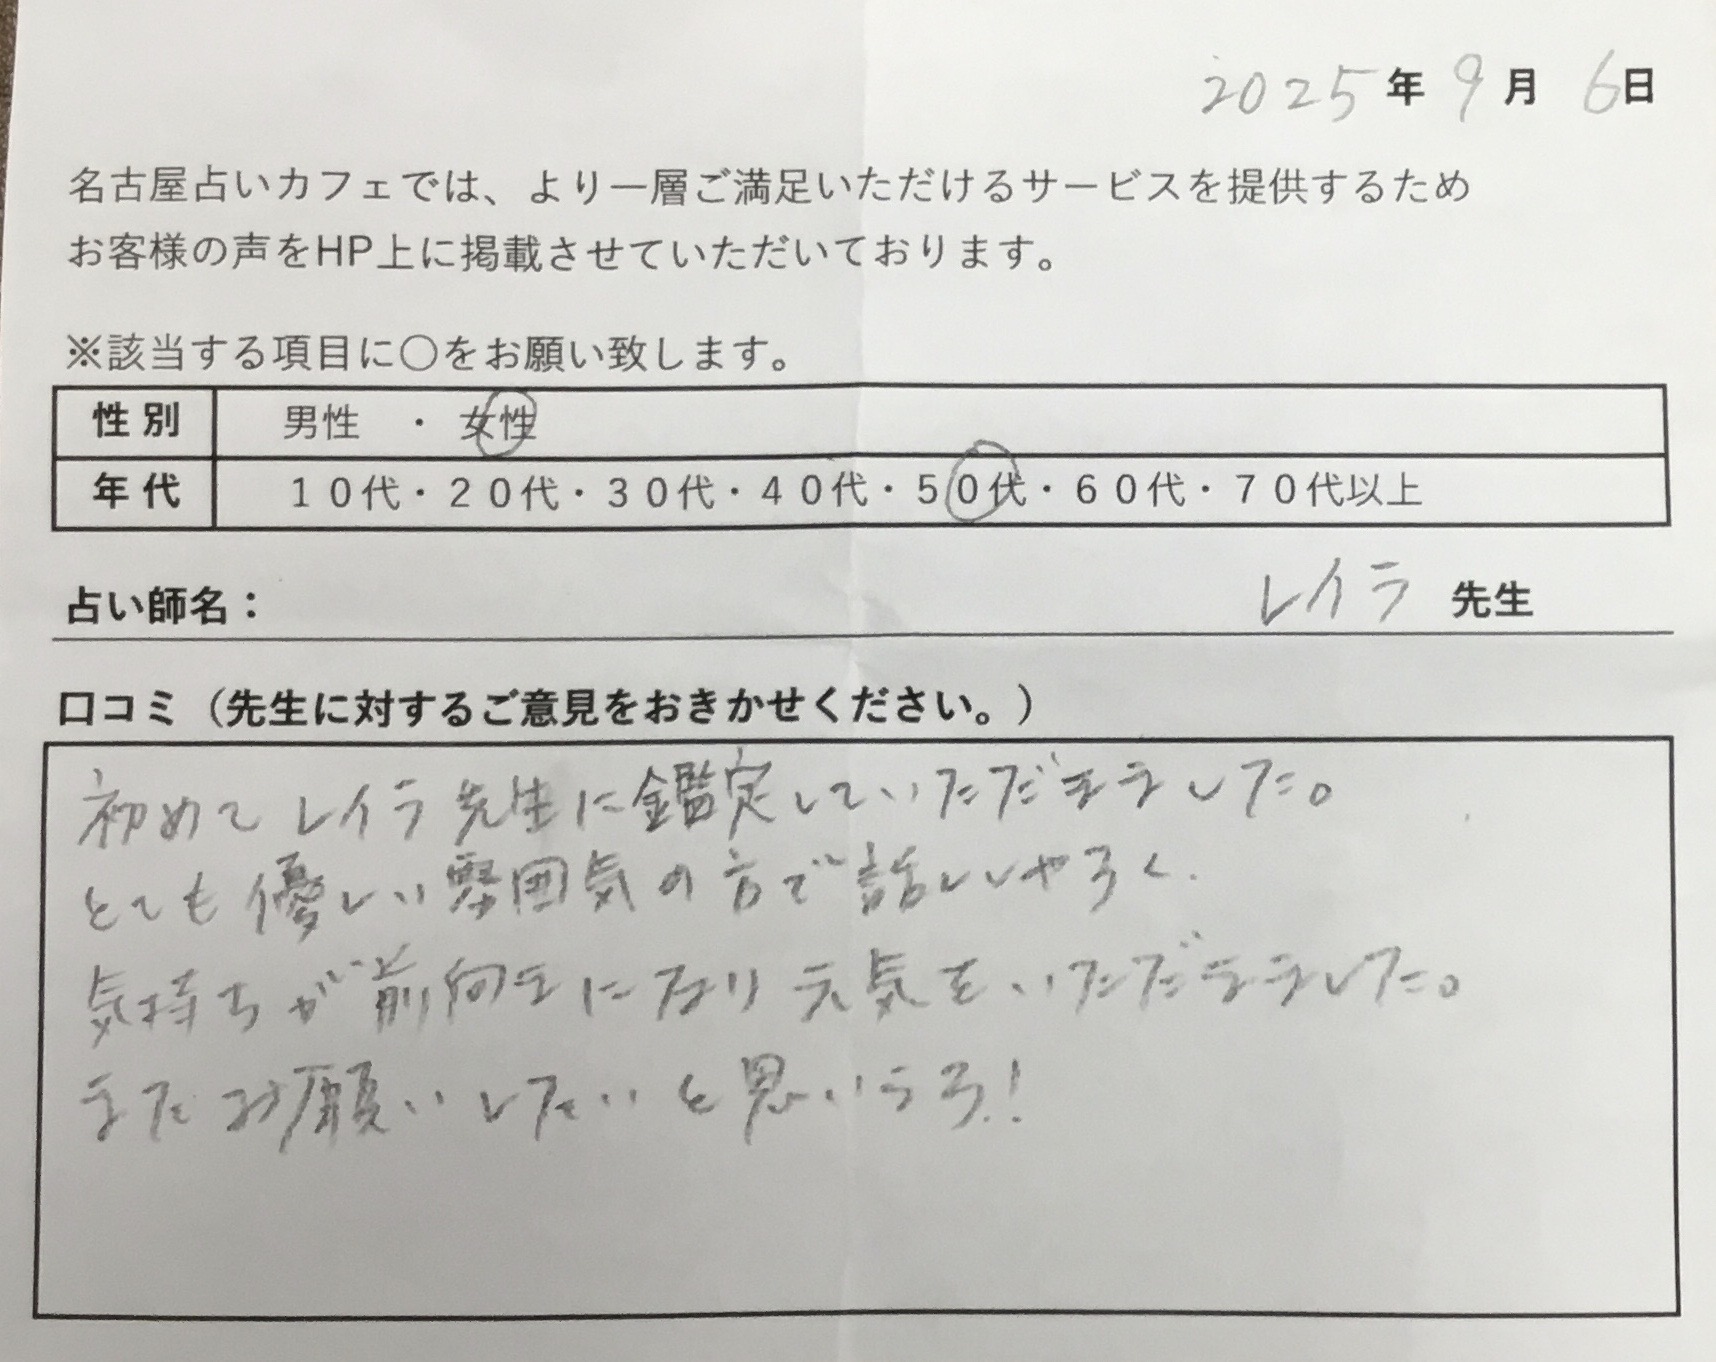 2025年9月6日
名古屋占いカフェでは、より一層ご満足いただけるサービスを提供するため
お客様の声をHP上に掲載させていただいております。
※該当する項目に〇をお願い致します。
性別 男性 ・ 女性
年代 10代・20代・30代・40代・50代・60代・70代以上
占い師名： レイラ 先生
口コミ（先生に対するご意見をおきかせください。）
初めてレイラ先生に鑑定していただきました。
とても優しい雰囲気の方で話しやすく、
気持ちが前向きになり元気をいただきました。
またお願いしたいと思います!